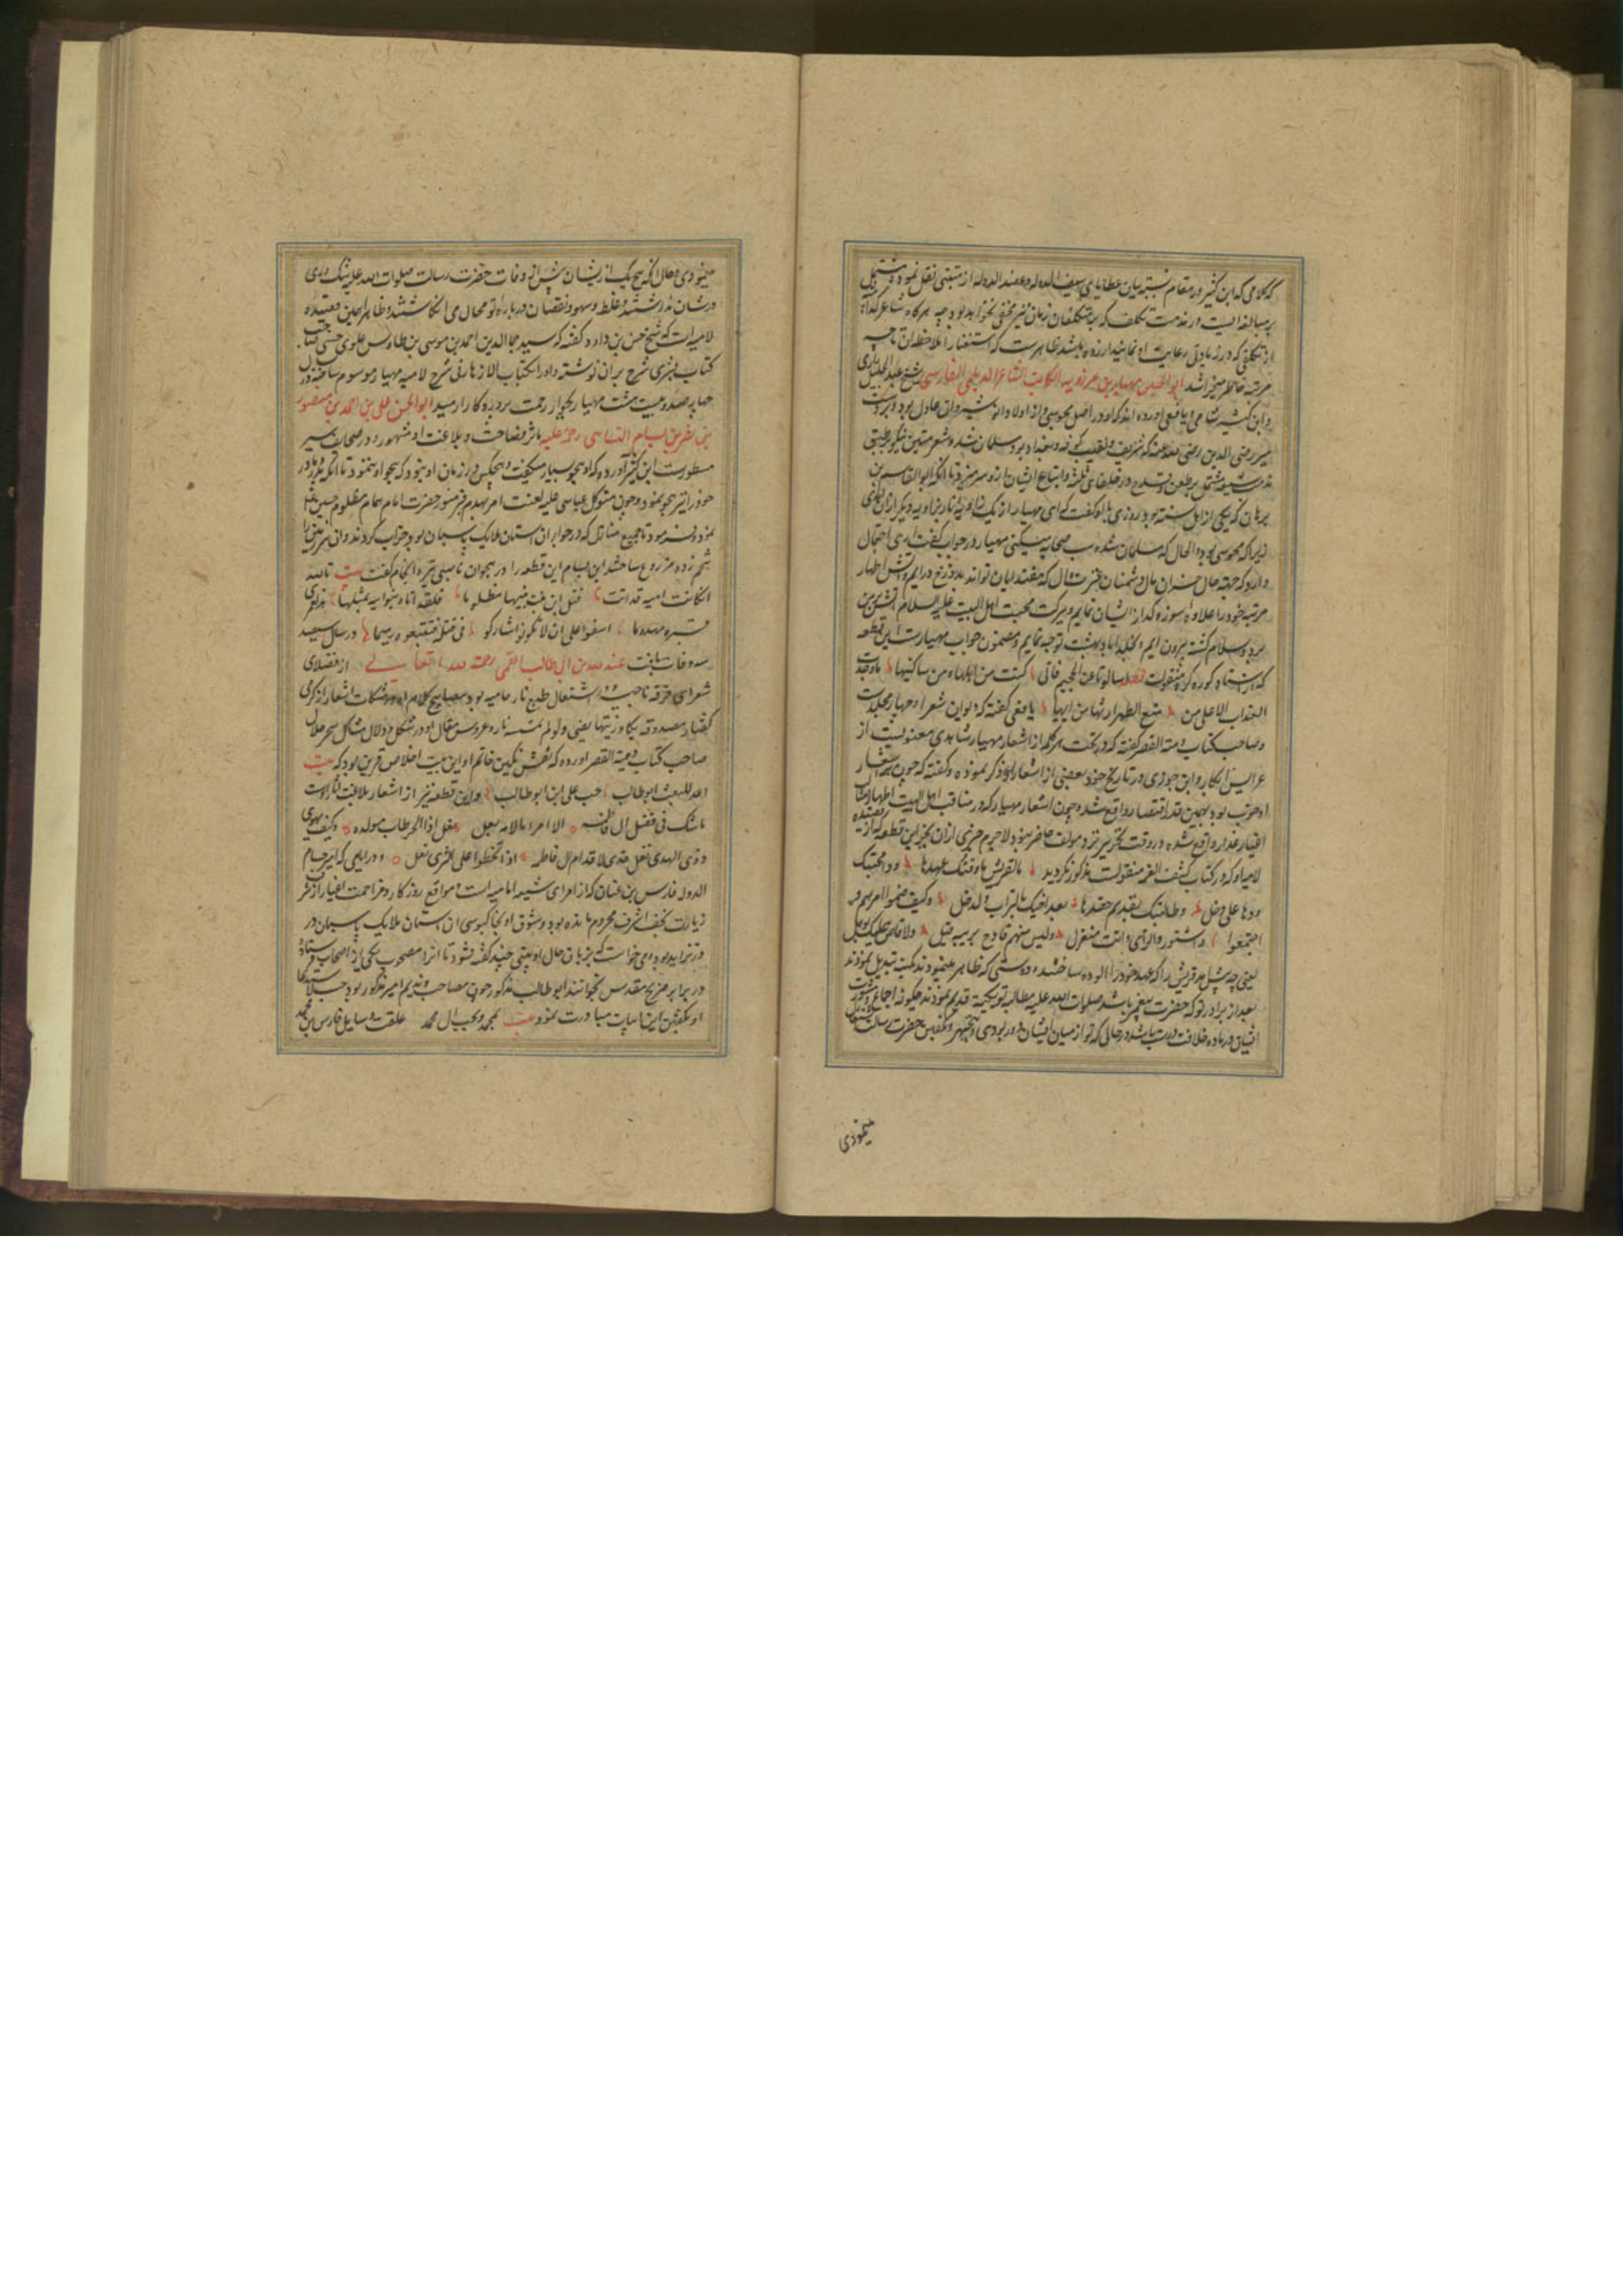 که کلامی که ابن کثیر در مقام نسبت بیان عطایای سیف الدوله و عضد الدوله از متنبی نقل نموده مشتمل
بر مبالغه ایست در مذمت تکلف که بر متکلفان زمان نیز مخفی نخواهد بود چه هرگاه شاعر گداء
از تکلفی که در زیادتی رعایت او نمایند آزرده باشد ظاهرست که استغنا را ملاحظه آن تا چه
مرتبه خاطر میخراشد ابو الحسین مهیار بن مرزویه الکاتب الشاعر الدیلمی الفارسی شیخ عبد الجلیل رازی
و ابن کثیر شامی و یافعی آورده اند که او در اصل مجوسی و از اولاد انوشیروان عادل بود و بر دست
میر رضی الدین رضی عنه که شریف و نقیب کوفه و بغداد بود مسلمان شد و شعر متین نیکو بر طبق
مذهب شیعه مشتمل بر طعن و قدح در خلفای ثلثه و اتباع ایشان ازو سر میزد تا آنکه ابو القاسم بن
برهان که یکی از اهل سنة بود روزی با او گفت که ای مهیار از یک زاویه نار بزاویه دیگر از آن رفتی
زیرا که مجوسی بود و الحال که مسلمان شده سب صحابه میکنی مهیار در جواب گفت این احتمال
دارد که جهة حال خسران مآل دشمنان عترت و آل که مقتدایان تواند بدوزخ درایم و آتش اظهار
مرتبه خود را علاوه سوز و گداز ایشان نمایم و ببرکت محبت اهل البیت علیه السلام آتش بر من
برد و سلام گشته بیرون ایم و بخلد اباد بهشت توجه نمایم و مضمون جواب مهیارست این قطعه
که از استاد کوره کره منقولست قطعه سالونا عن الجحیم فانی کنت من اهلها و من ساکنیها ما وجدت
العذاب الا علی من منع الطهر ارثها من ابیها یافعی گفته که دیوان شعر او چهار مجلدست
و صاحب کتاب دمیة القصر گفته که در تحت هر کلمه از اشعار مهیار شاهدی معنویست از
عرایس ابکار و ابن جوزی در تاریخ خود بعضی از اشعار او ذکر نموده و گفته که چون همه اشعار
او خوب بود بهمین قدر اقتصار واقع شد و چون اشعار مهیار که در مناقب اهل البیت اطهار و مثالب
اغیار غدار واقع شده در وقت تحریر نزد مولف حاضر نبود لاجرم چیزی از آن بجز این قطعه که از قصیده
لامیه او که در کتاب کشف الغمه منقولست مذکور نگردید مالقریش ماذقتک عهدها و دامجتک
ودها علی دخل وطالبتک بقدیم حقدها بعد اخیک بالتراب والدخل وکیف ضموا امرهم و
اجتمعوا واستشوروا الرأی وانت منعزل ولیس منهم قادح بریبه فیک ولا قاض علیک بوهل
یعنی چه شد مر قریش را که عهد خود را آلوده ساختند و دوستی که ظاهر مینمودند بکینه تبدیل نمودند
بعد از برادر تو که حضرت پیغمبر باشد صلوات الله علیه مطالبه تو بکینه قدیم نمودند چگونه اجماع و مشورت
ایشان در ماده خلافت درست باشد در حالی که تو از میان ایشان دور بودی و بتجهیز و تکفین حضرت رسالت اشتغال
مینمودی
مینمودی و حال آنکه هیچ یک از ایشان پیش از وفات حضرت رسالت صلوات الله علیه شک و ریبی
در شان تو نداشتند و غلط و سهو و نقصان درباره تو محال می انگاشتند و ظاهرا همین قصیده
لامیه است که شیخ حسن بن داود گفته که سید جمال الدین احمد بن موسی بن طاوس علوی حسنی صاحب
کتاب بشری شرح بر آن نوشته و او را بکتاب الازهار فی شرح لامیه مهیار موسوم ساخته و در سال
چهار صد و بیست هشت مهیار بجوار رحمت پروردکار رسید ابو الحسن علی بن احمد بن منصور
بن نصر بن بسام البسامی رحمة علیه مآثر فصاحت و بلاغت او مشهور و در صحایف سیر
مسطورست ابن کثیر آورده که او هجو بسیار میگفت و هیچکس در زمان او نبود که هجو او ننمود تا آنکه پدر و مادر
خود را نیز هجو نمود و چون متوکل عباسی علیه لعنت امر بهدم قبر منور حضرت امام همام مظلوم حسین علیه
نمود و فرمود تا جمیع منازل که در جوار آن استان ملایک پاسبان بود خراب کردند و آن سرزمین را
شخم زده مزروع ساختند ابن بسام این قطعه را در هجو آن ناصبی تیره انجام گفت بیت تالله
ان کانت امیه قد اتت قتل ابن بنت نبیها مظلوما فلقد اتاه بنو ابیه بمثلها هذا لعمری
قبره مهدوما اسفوا علی ان لا یکونوا شارکوا فی قتله فتتبعوه رمیما در سال سیصد
سه وفات یافت عبد الله بن ابی طالب القمی رحمة الله تعالی از فضلای
شعرای فرقه ناجیه و اشتعال طبع نار حامیه بود مصابیح کلام او در مشکات اشعار از گرمی
گفتار مصدوقه یکاد زیتها یضیء ولو لم تمسسه نار و عروس مقال او در شکل و دلال مشاکل سحر حلال
صاحب کتاب دمیة القصر آورده که نقش نگین خاتم او این بیت اخلاص قرین بود که بیت
اعد للبعث ابو طالب حب علی ابن ابو طالب و این قطعه نیز از اشعار بلاغت آثار اوست
ما شک فی فضل ال فاطمه الا امرء ما لامه بعل نغل اذا الحر طاب مولده وکیف یهوی
ذوی الهدی نغل خدی لاقدام ال فاطمه اذا تخطوا علی الثری نعل و در ایامی که امیر حسام
الدوله فارس بن عنان که از امرای شیعه امامیه است و مواقع روزکار و مزاحمت اغیار از شرف
زیارت نجف اشرف محروم مانده بود و شوق او بخاکبوسی آن استان ملایک پاسبان در
تزاید بود می خواست که بزبان حال او بیتی چند گفته شود تا آنرا مصحوب یکی از اصحاب فرستاده
در برابر ضریح مقدس بخوانند ابو طالب مذکور چون مصاحب و ندیم امیر مذکور بود حسب الاستدعا
او بگفتن این ابیات مبادرت نمود بیت بمحمد وبحب ال محمد علقت وسایل فارس بن محمد